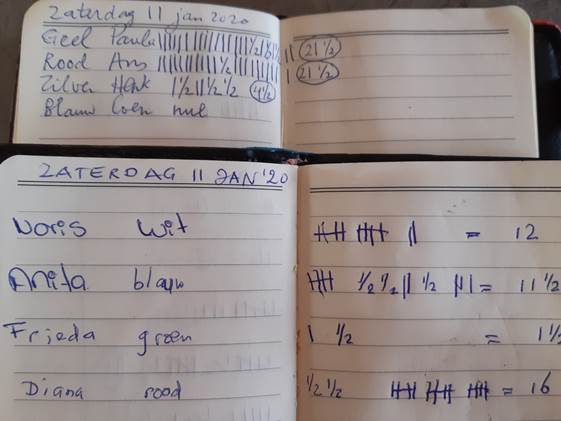 Zaterdag 11 jan 2020
Geel Paula ||||||||||||||||| ½ | ½ | || 21½
Rood Ans |||||||||| ½ |||||||||| | 21½
Zilver Henk 1½ || ½ ½ 4½
Blauw Coen nul
ZATERDAG 11 JAN '20
Noris Wit 𝍸 𝍸 || = 12
Anita blauw 𝍸 ½ ½ || ½ ||| = 11½
Frieda groen 1 ½ = 1½
Diana rood ½ ½ 𝍸 𝍸 𝍸 = 16